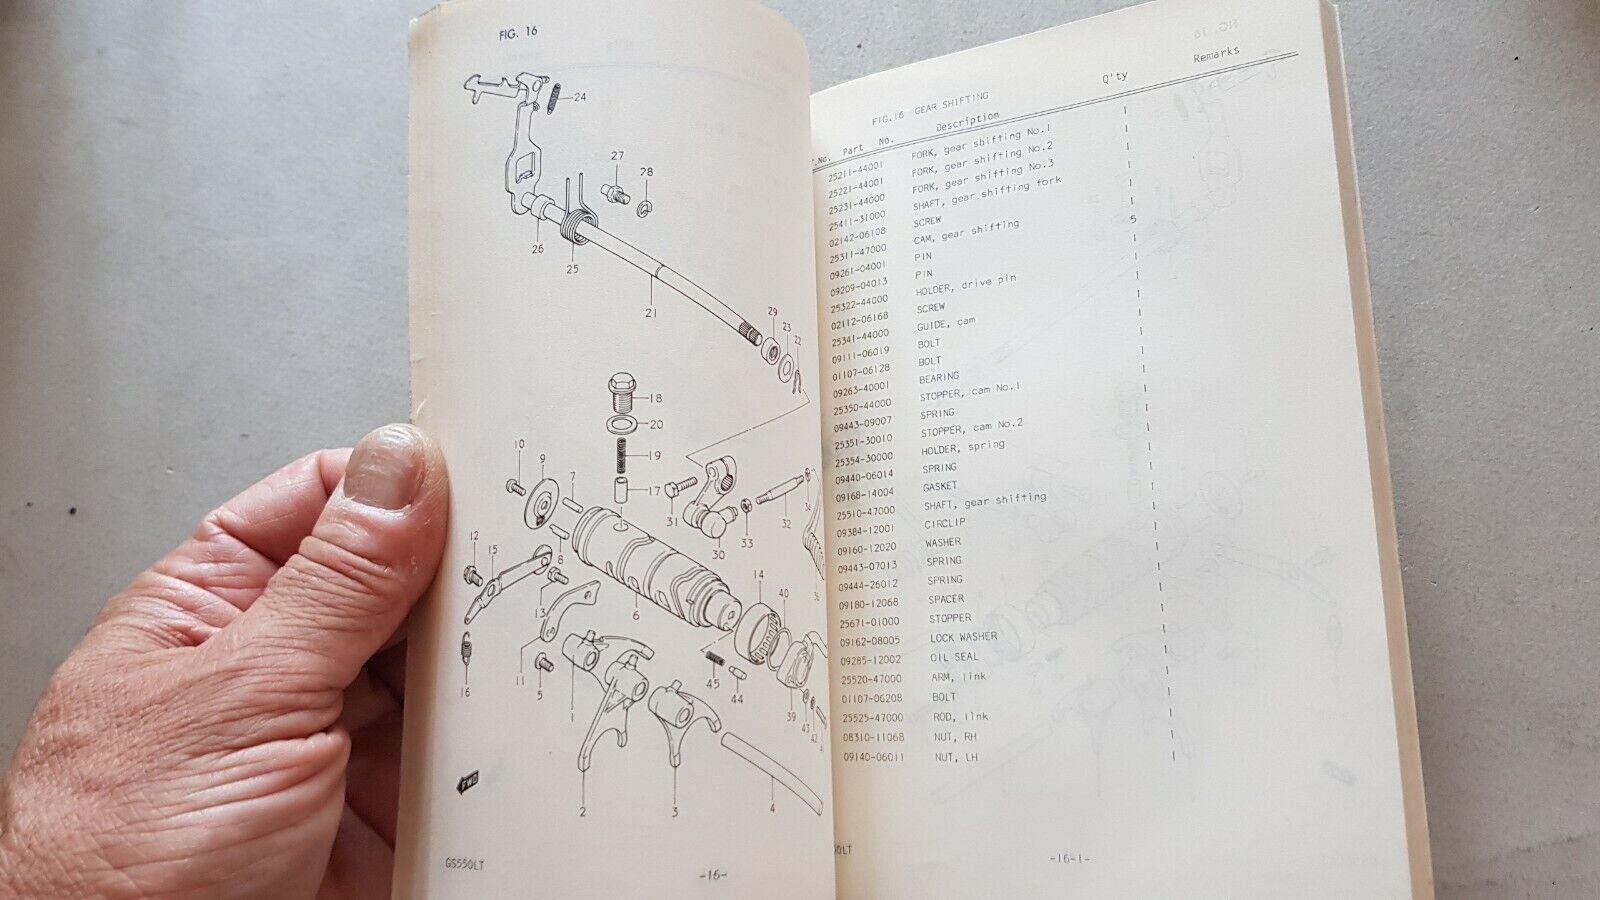 FIG. 16
24
27
28
26
25
21
29
23
22
18
20
19
10
9
7
17
31
30
33
32
34
12
15
8
13
6
14
40
36
16
11
5
1
45
44
39
43
42
2
3
4
FWD
GS550LT
-16-
Remarks
Q'ty
FIG.16 GEAR SHIFTING
.No. Part No. Description
25211-44001 FORK, gear shifting No.1 1
25221-44001 FORK, gear shifting No.2 1
25231-44000 FORK, gear shifting No.3 1
25411-31000 SHAFT, gear shifting fork 1
02142-06108 SCREW 1
25311-47000 CAM, gear shifting 1
09261-04001 PIN 5
09209-04013 PIN 1
25322-44000 HOLDER, drive pin 1
02112-06168 SCREW 1
25341-44000 GUIDE, cam 1
09111-06019 BOLT 1
01107-06128 BOLT 1
09263-40001 BEARING 1
25350-44000 STOPPER, cam No.1 1
09443-09007 SPRING 1
25351-30010 STOPPER, cam No.2 1
25354-30000 HOLDER, spring 1
09440-06014 SPRING 1
09168-14004 GASKET 1
25510-47000 SHAFT, gear shifting 1
09384-12001 CIRCLIP 1
09160-12020 WASHER 1
09443-07013 SPRING 1
09444-26012 SPRING 1
09180-12068 SPACER 1
25671-01000 STOPPER 1
09162-08005 LOCK WASHER 1
09285-12002 OIL SEAL 1
25520-47000 ARM, link 1
01107-06208 BOLT 1
25525-47000 ROD, link 1
08310-11068 NUT, RH 1
09140-06011 NUT, LH 1
0LT
-16-1-